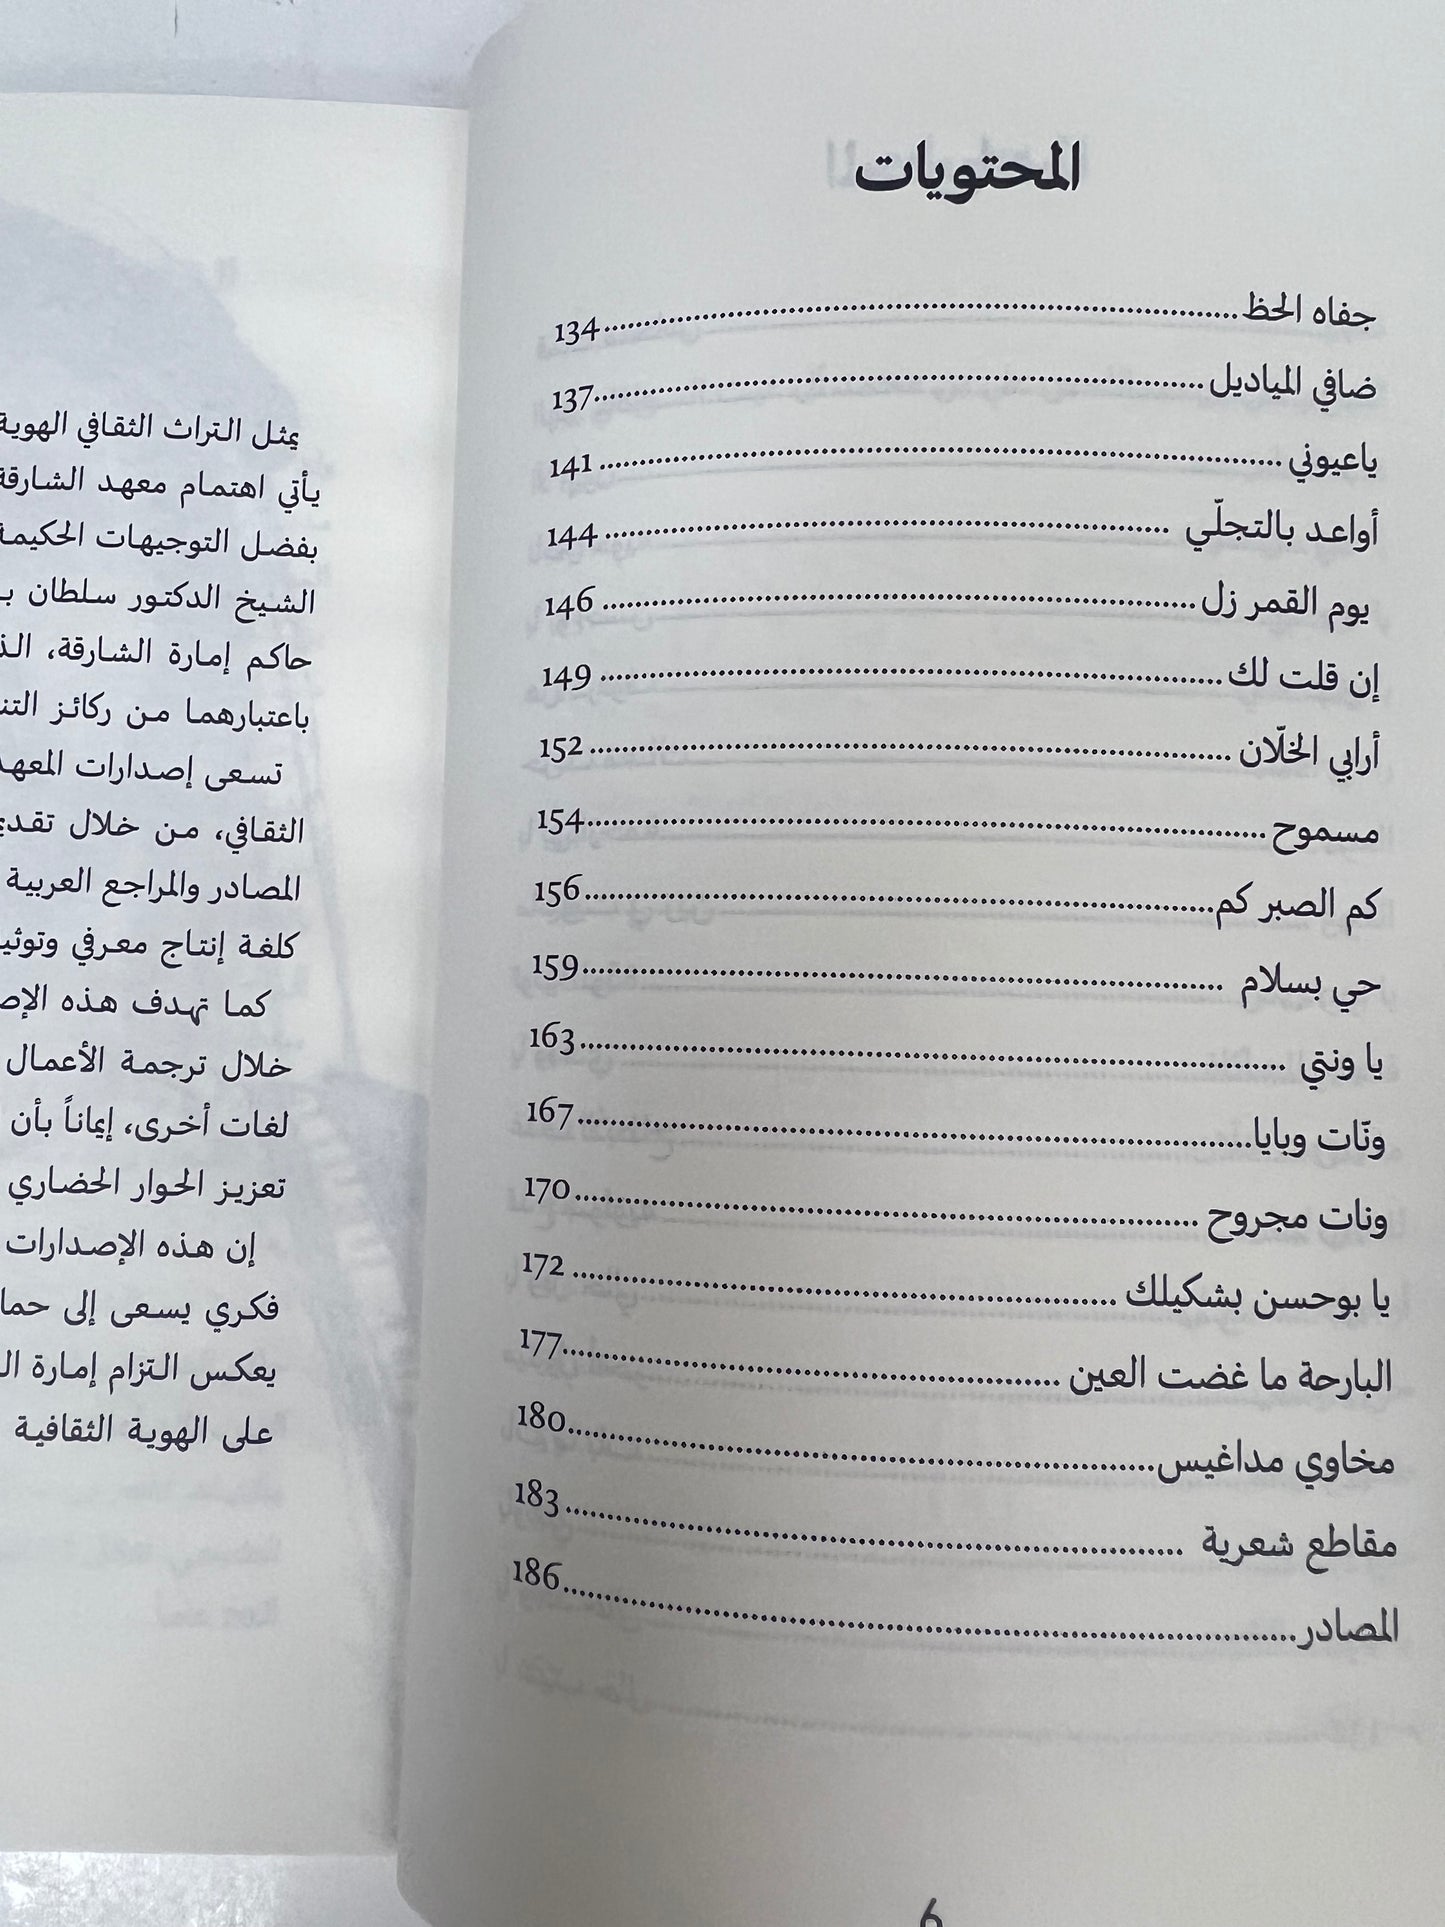 المحتويات
جفاه الحظ........................134
ضافي المياديل........................137
ياعيوني........................141
أواعد بالتجلّي ........................144
يوم القمر زل........................146
إن قلت لك........................149
أرابي الخلّان........................152
مسموح........................154
كم الصبر كم........................156
حي بسلام ........................159
يا ونتي ........................163
ونّات وبايا........................167
ونات مجروح ........................170
يا بوحسن بشكيلك ........................172
البارحة ما غضت العين ........................177
مخاوي مداغيس........................180
مقاطع شعرية ........................183
المصادر........................186
6
يمثل التراث الثقافي الهوية
يأتي اهتمام معهد الشارقة
بفضل التوجيهات الحكيمة
الشيخ الدكتور سلطان
حاكم إمارة الشارقة،
باعتبارهما من ركائز
تسعى إصدارات المعهد
الثقافي، من خلال
المصادر والمراجع العربية
كلغة إنتاج معرفي
كما تهدف هذه
خلال ترجمة الأعمال
لغات أخرى، إيماناً بأن
تعزيز الحوار الحضاري
إن هذه الإصدارات
فكري يسعى إلى
يعكس التزام إمارة
على الهوية الثقافية